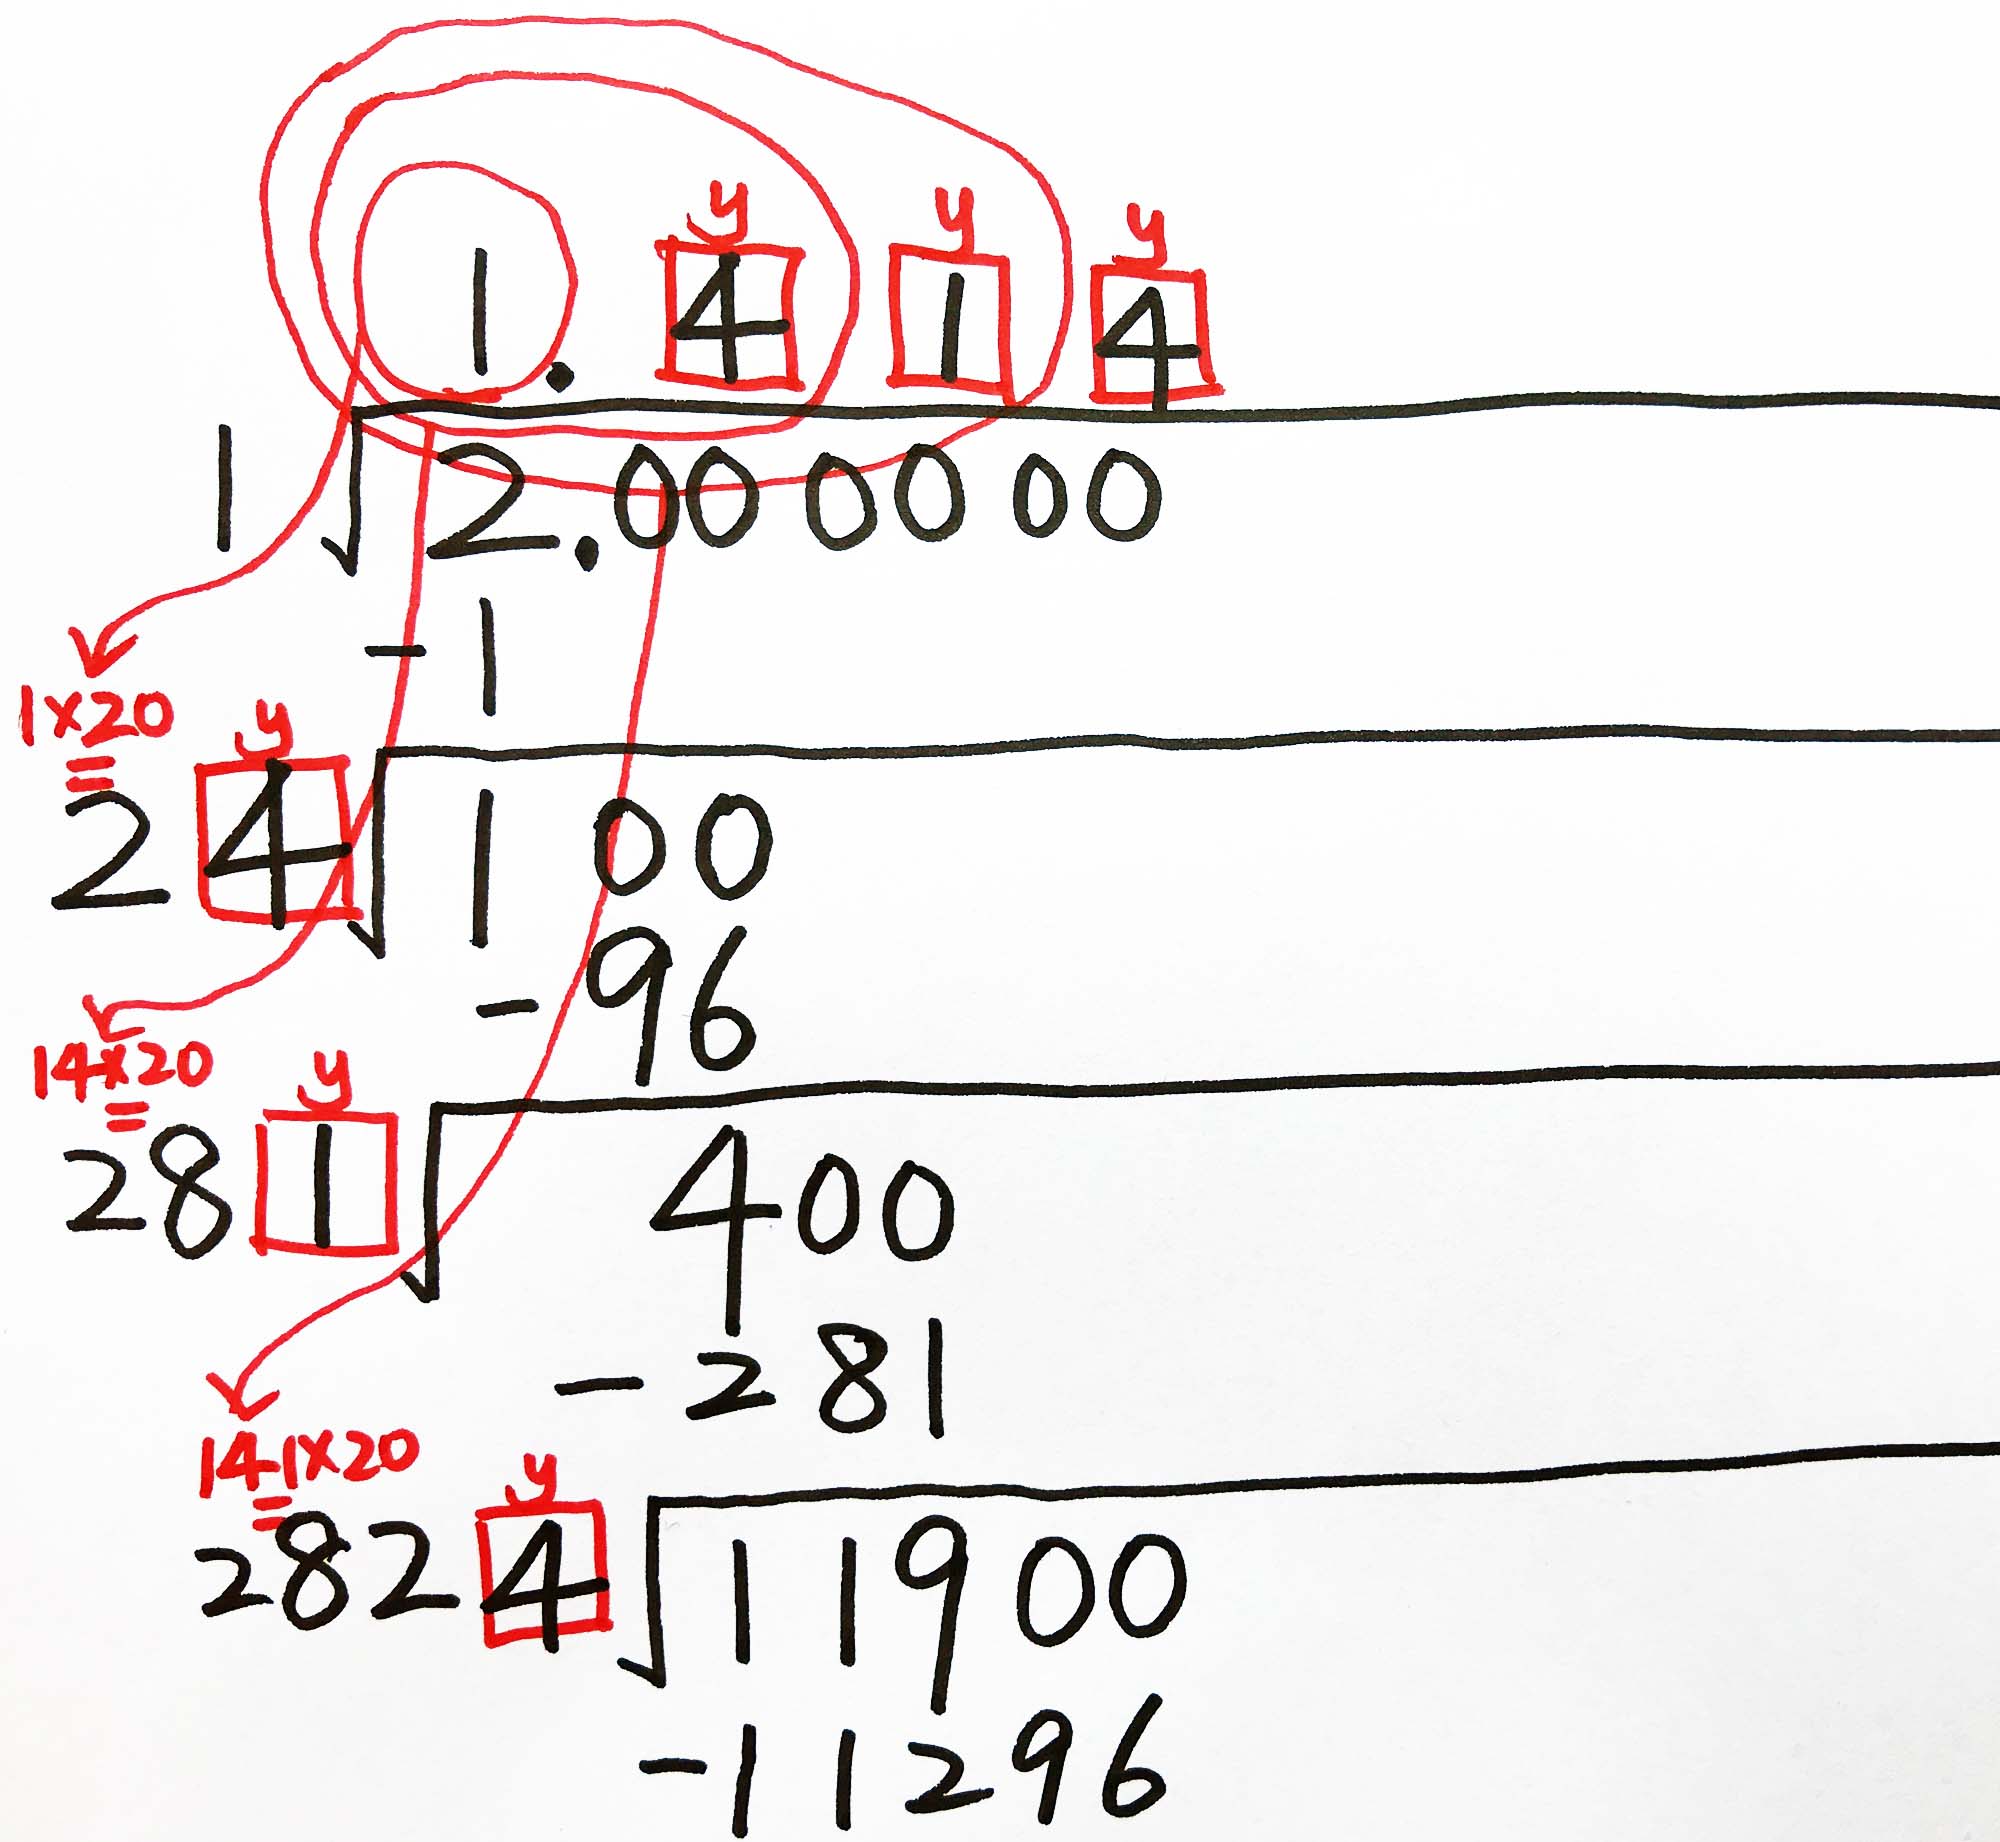 y y y
1. 4 1 4
1 √2.00 00 00
-1
1×20
=
y
2 4 √1 00
-96
14×20
=
y
28 1 √400
-281
141×20
=
y
282 4 √11900
-11296